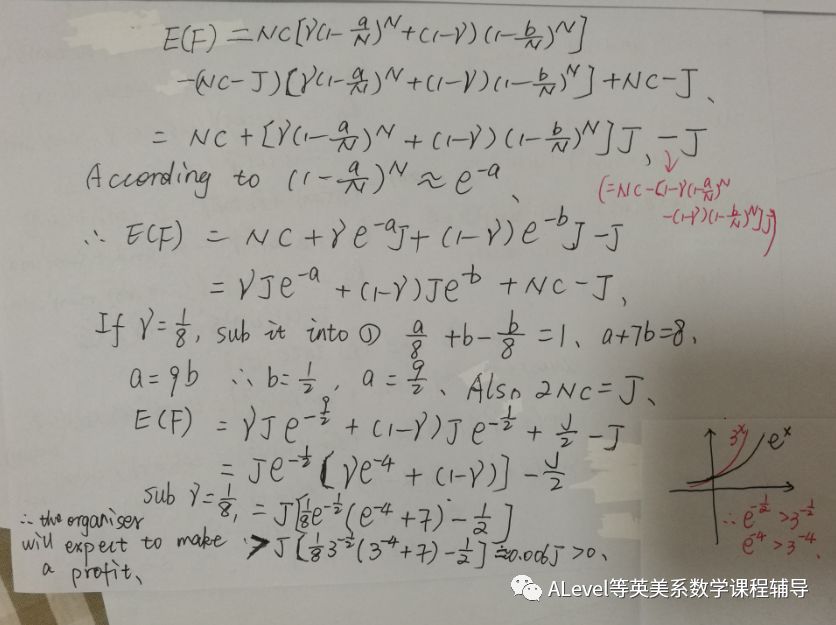 E(F) = NC[γ(1-a/N)^N + (1-γ)(1-b/N)^N]
-(NC-J)[γ(1-a/N)^N + (1-γ)(1-b/N)^N] + NC-J、
= NC + [γ(1-a/N)^N + (1-γ)(1-b/N)^N]J、-J
(=NC-[1-γ(1-a/N)^N
-(1-γ)(1-b/N)^N]J)
According to (1-a/N)^N ≈ e^-a、
∴ E(F) = NC + γe^-a J + (1-γ)e^-b J - J
= γJe^-a + (1-γ)Je^-b + NC-J、
If γ=1/8, sub it into ① a/8 + b - b/8 = 1、 a+7b=8、
a=9b ∴ b=1/2, a=9/2、 Also 2NC=J、
E(F) = γJe^-9/2 + (1-γ)Je^-1/2 + J/2 - J
= Je^-1/2[γe^-4 + (1-γ)] - J/2
sub γ=1/8, = J[1/8 e^-1/2(e^-4+7) - 1/2]
> J[1/8 3^-1/2(3^-4+7) - 1/2] ≈0.006J>0、
∴ the organiser
will expect to make
a profit、
3^x
e^x
∴ e^-1/2 > 3^-1/2
e^-4 > 3^-4、
ALevel等英美系数学课程辅导